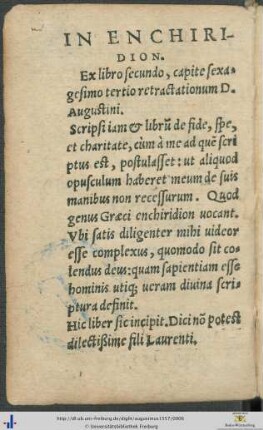 IN ENCHIRI-
DION.
Ex libro secundo, capite sexa-
gesimo tertio retractationum D.
Augustini.
Scripsi iam & librũ de fide, spe,
et charitate, cùm à me ad quẽ scri
ptus est, postulasset: ut aliquod
opusculum haberet meum de suis
manibus non recessurum. Quod
genus Græci enchiridion uocant.
Vbi satis diligenter mihi uideor
esse complexus, quomodo sit co-
lendus deus: quam sapientiam esse
hominis utiq; ueram diuina scri-
ptura definit.
Hic liber sic incipit. Dici nõ potest
dilectissime fili Laurenti.
© Universitätsbibliothek Freiburg